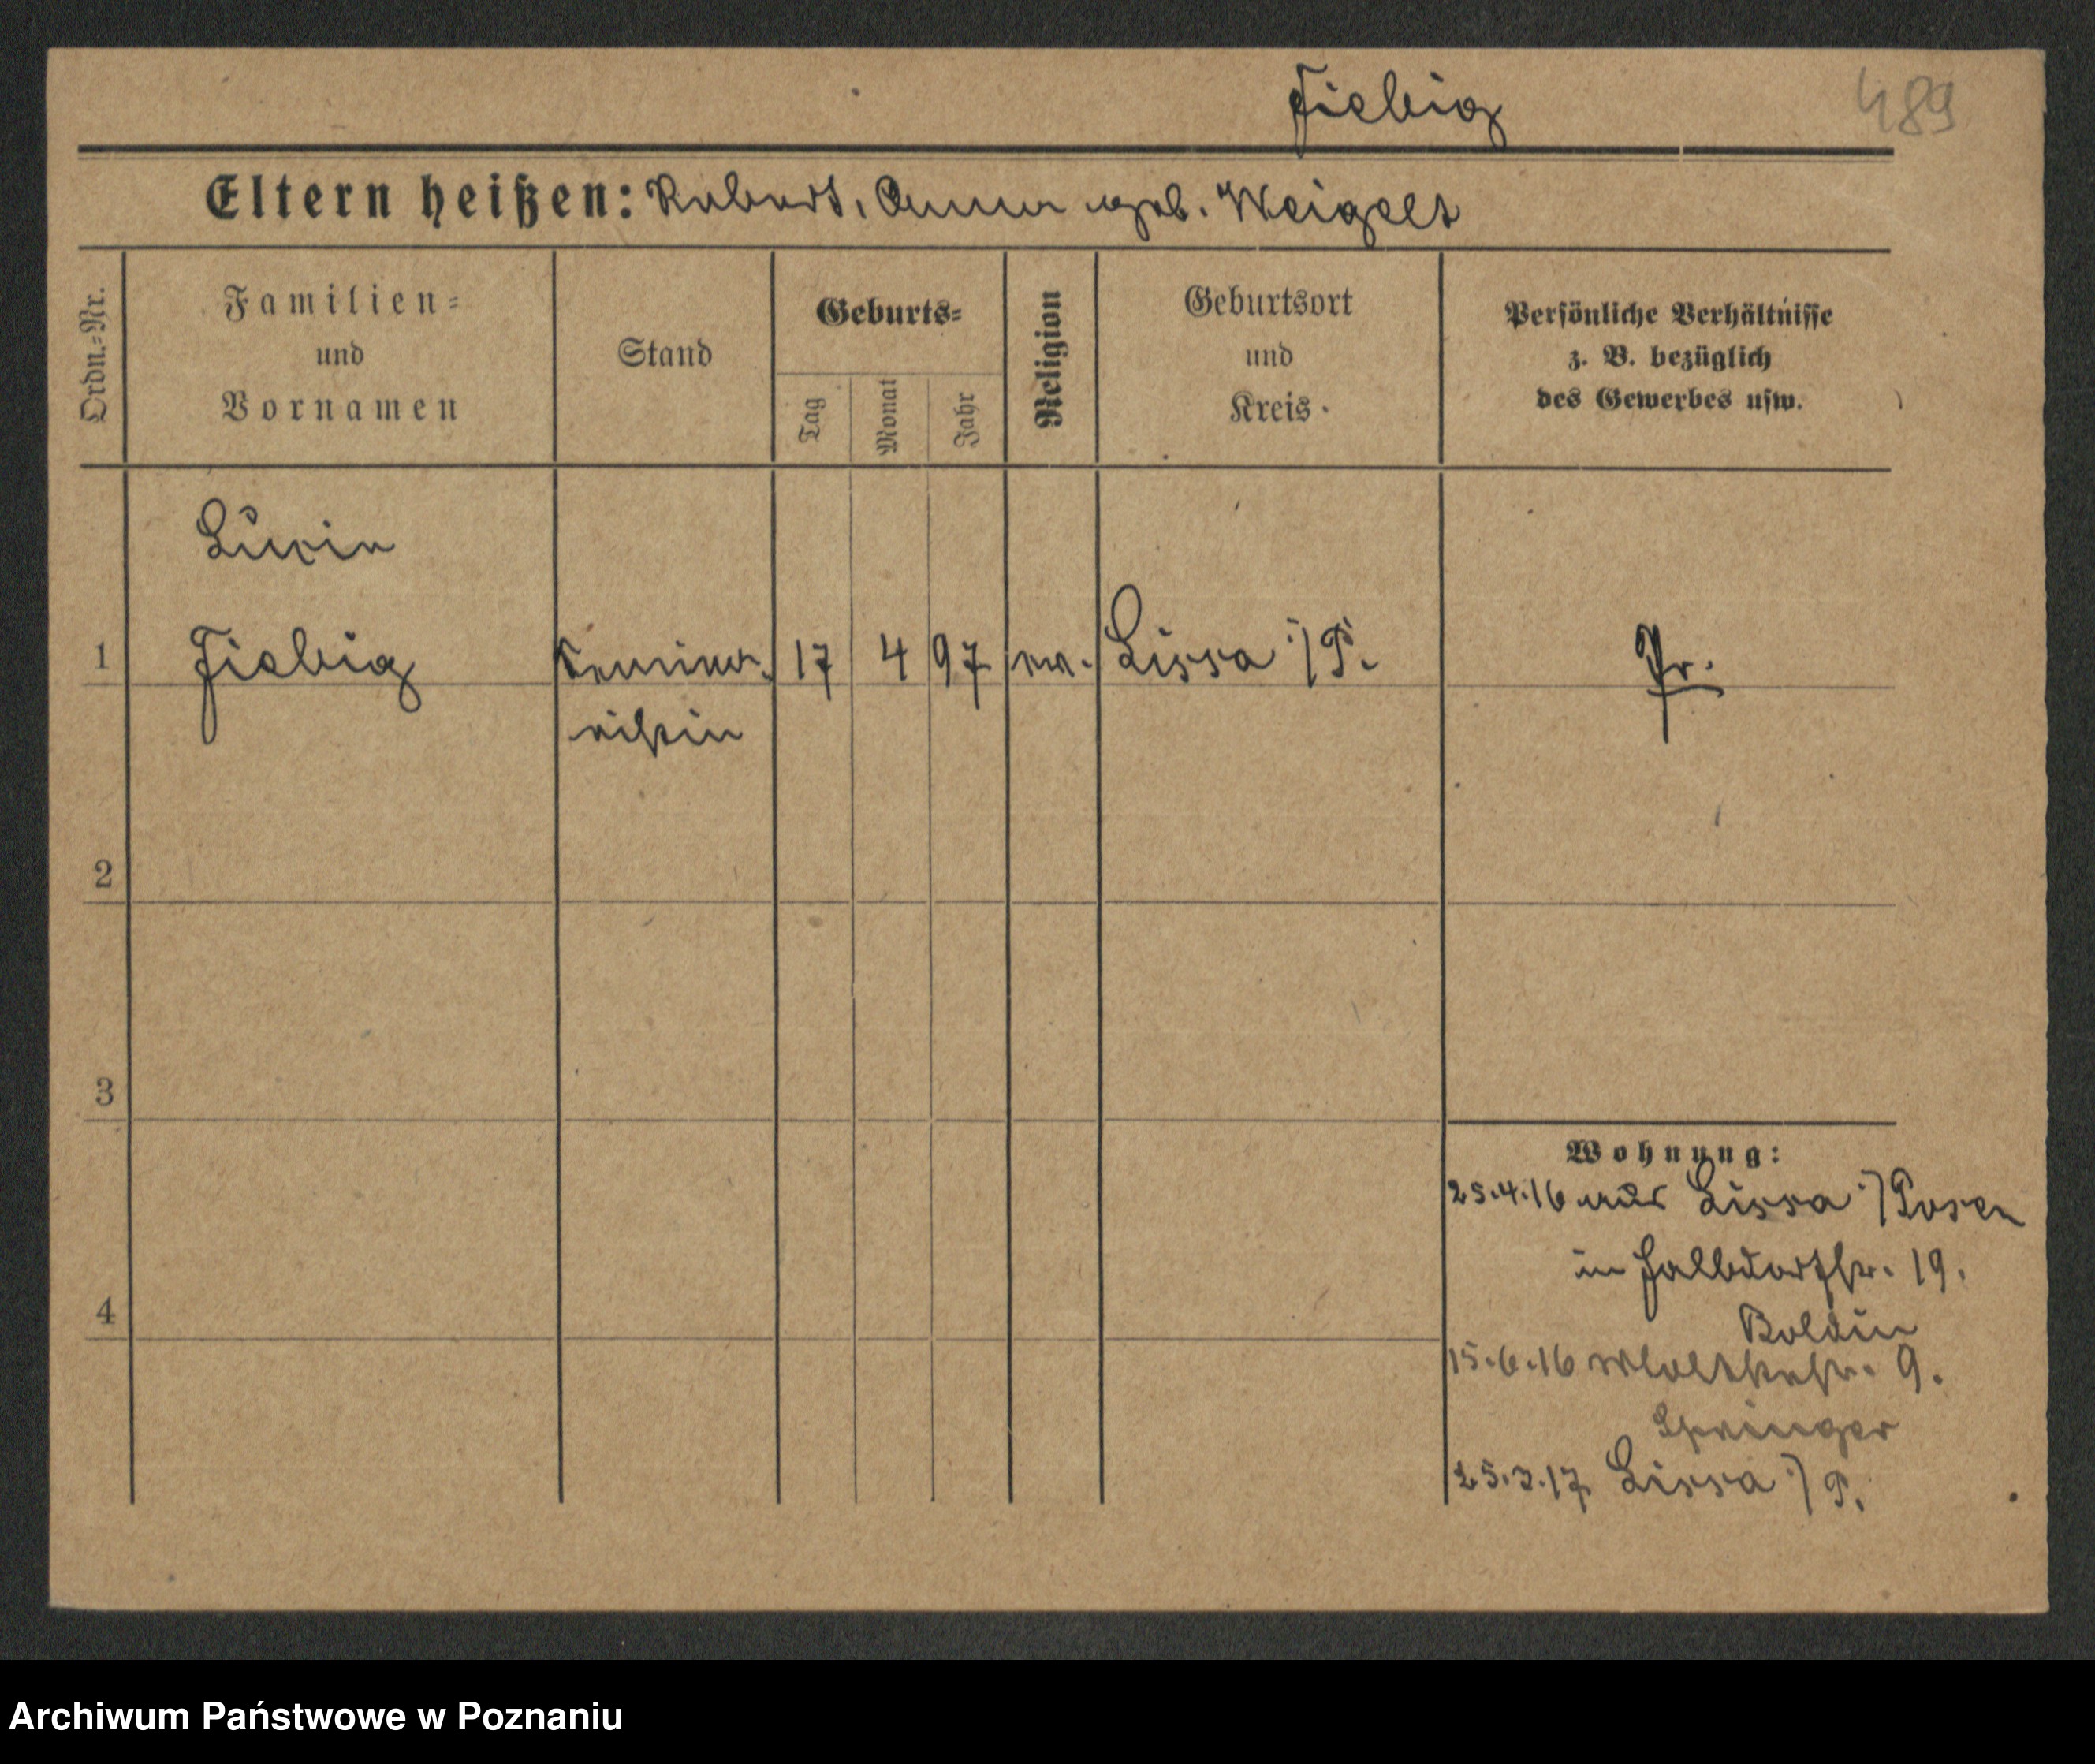 Fiebig
489
Eltern heißen: Robert, Anna geb. Weigelt
Ordn.=Nr.
Familien=
und
Vornamen
Stand
Geburts=
Tag
Monat
Jahr
Religion
Geburtsort
und
Kreis.
Persönliche Verhältnisse
z. B. bezüglich
des Gewerbes usw.
Fiebig
1
Seminar-
17
4
97
ev.
Lissa i/P.
Pr.
ristin
2
3
4
Wohnung:
25.4.16 aus Lissa i/Posen
in Halbdorfstr. 19.
Boldin
15.6.16 Moltkestr. 9.
Springer
25.3.17 Lissa i/P.
Archiwum Państwowe w Poznaniu